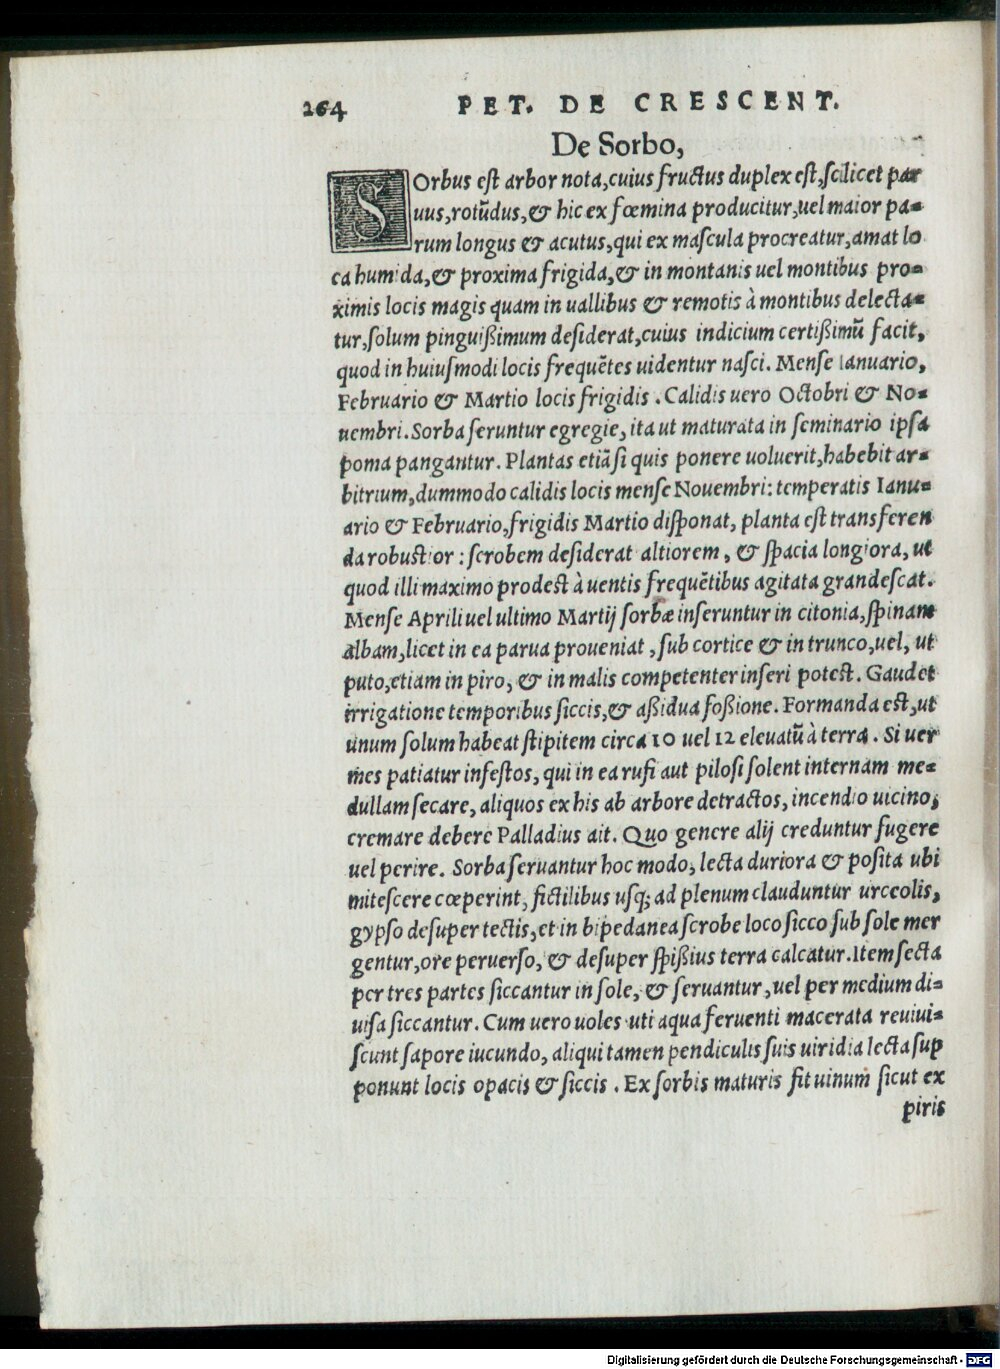 264 PET. DE CRESCENT.
De Sorbo,
SOrbus est arbor nota, cuius fructus duplex est, scilicet par
uus, rotūdus, & hic ex fœmina producitur, uel maior pa=
rum longus & acutus, qui ex mascula procreatur, amat lo
ca humida, & proxima frigida, & in montanis uel montibus pro=
ximis locis magis quam in uallibus & remotis à montibus delecta=
tur, solum pinguißimum desiderat, cuius indicium certißimũ facit,
quod in huiusmodi locis frequētes uidentur nasci. Mense Ianuario,
Februario & Martio locis frigidis. Calidis uero Octobri & No=
uembri. Sorba seruntur egregie, ita ut maturata in seminario ipsa
poma pangantur. Plantas etiā si quis ponere uoluerit, habebit ar=
bitrium, dummodo calidis locis mense Nouembri: temperatis Ianu=
ario & Februario, frigidis Martio disponat, planta est transferen
da robustior: scrobem desiderat altiorem, & spacia longiora, ut
quod illi maximo prodest à uentis frequētibus agitata grandescat.
Mense Aprili uel ultimo Martij sorbæ inseruntur in citonia, spinam
albam, licet in ea parua proueniat, sub cortice & in trunco, uel, ut
puto, etiam in piro, & in malis competenter inseri potest. Gaudet
irrigatione temporibus siccis, & aßidua foßione. Formanda est, ut
unum solum habeat stipitem circa 10 uel 12 eleuatũ à terra. Si uer
mes patiatur infestos, qui in ea rufi aut pilosi solent internam me=
dullam secare, aliquos ex his ab arbore detractos, incendio uicino,
cremare debere Palladius ait. Quo genere alij creduntur fugere
uel perire. Sorba seruantur hoc modo, lecta duriora & posita ubi
mitescere cœperint, fictilibus usq; ad plenum clauduntur urceolis,
gypso desuper tectis, et in bipedanea scrobe loco sicco sub sole mer
gentur, ore peruerso, & desuper spißius terra calcatur. Item secta
per tres partes siccantur in sole, & seruantur, uel per medium di=
uisa siccantur. Cum uero uoles uti aqua feruenti macerata reuiui=
scunt sapore iucundo, aliqui tamen pendiculis suis uiridia lecta sup
ponunt locis opacis & siccis. Ex sorbis maturis fit uinum sicut ex
piris
Digitalisierung gefördert durch die Deutsche Forschungsgemeinschaft - DFG